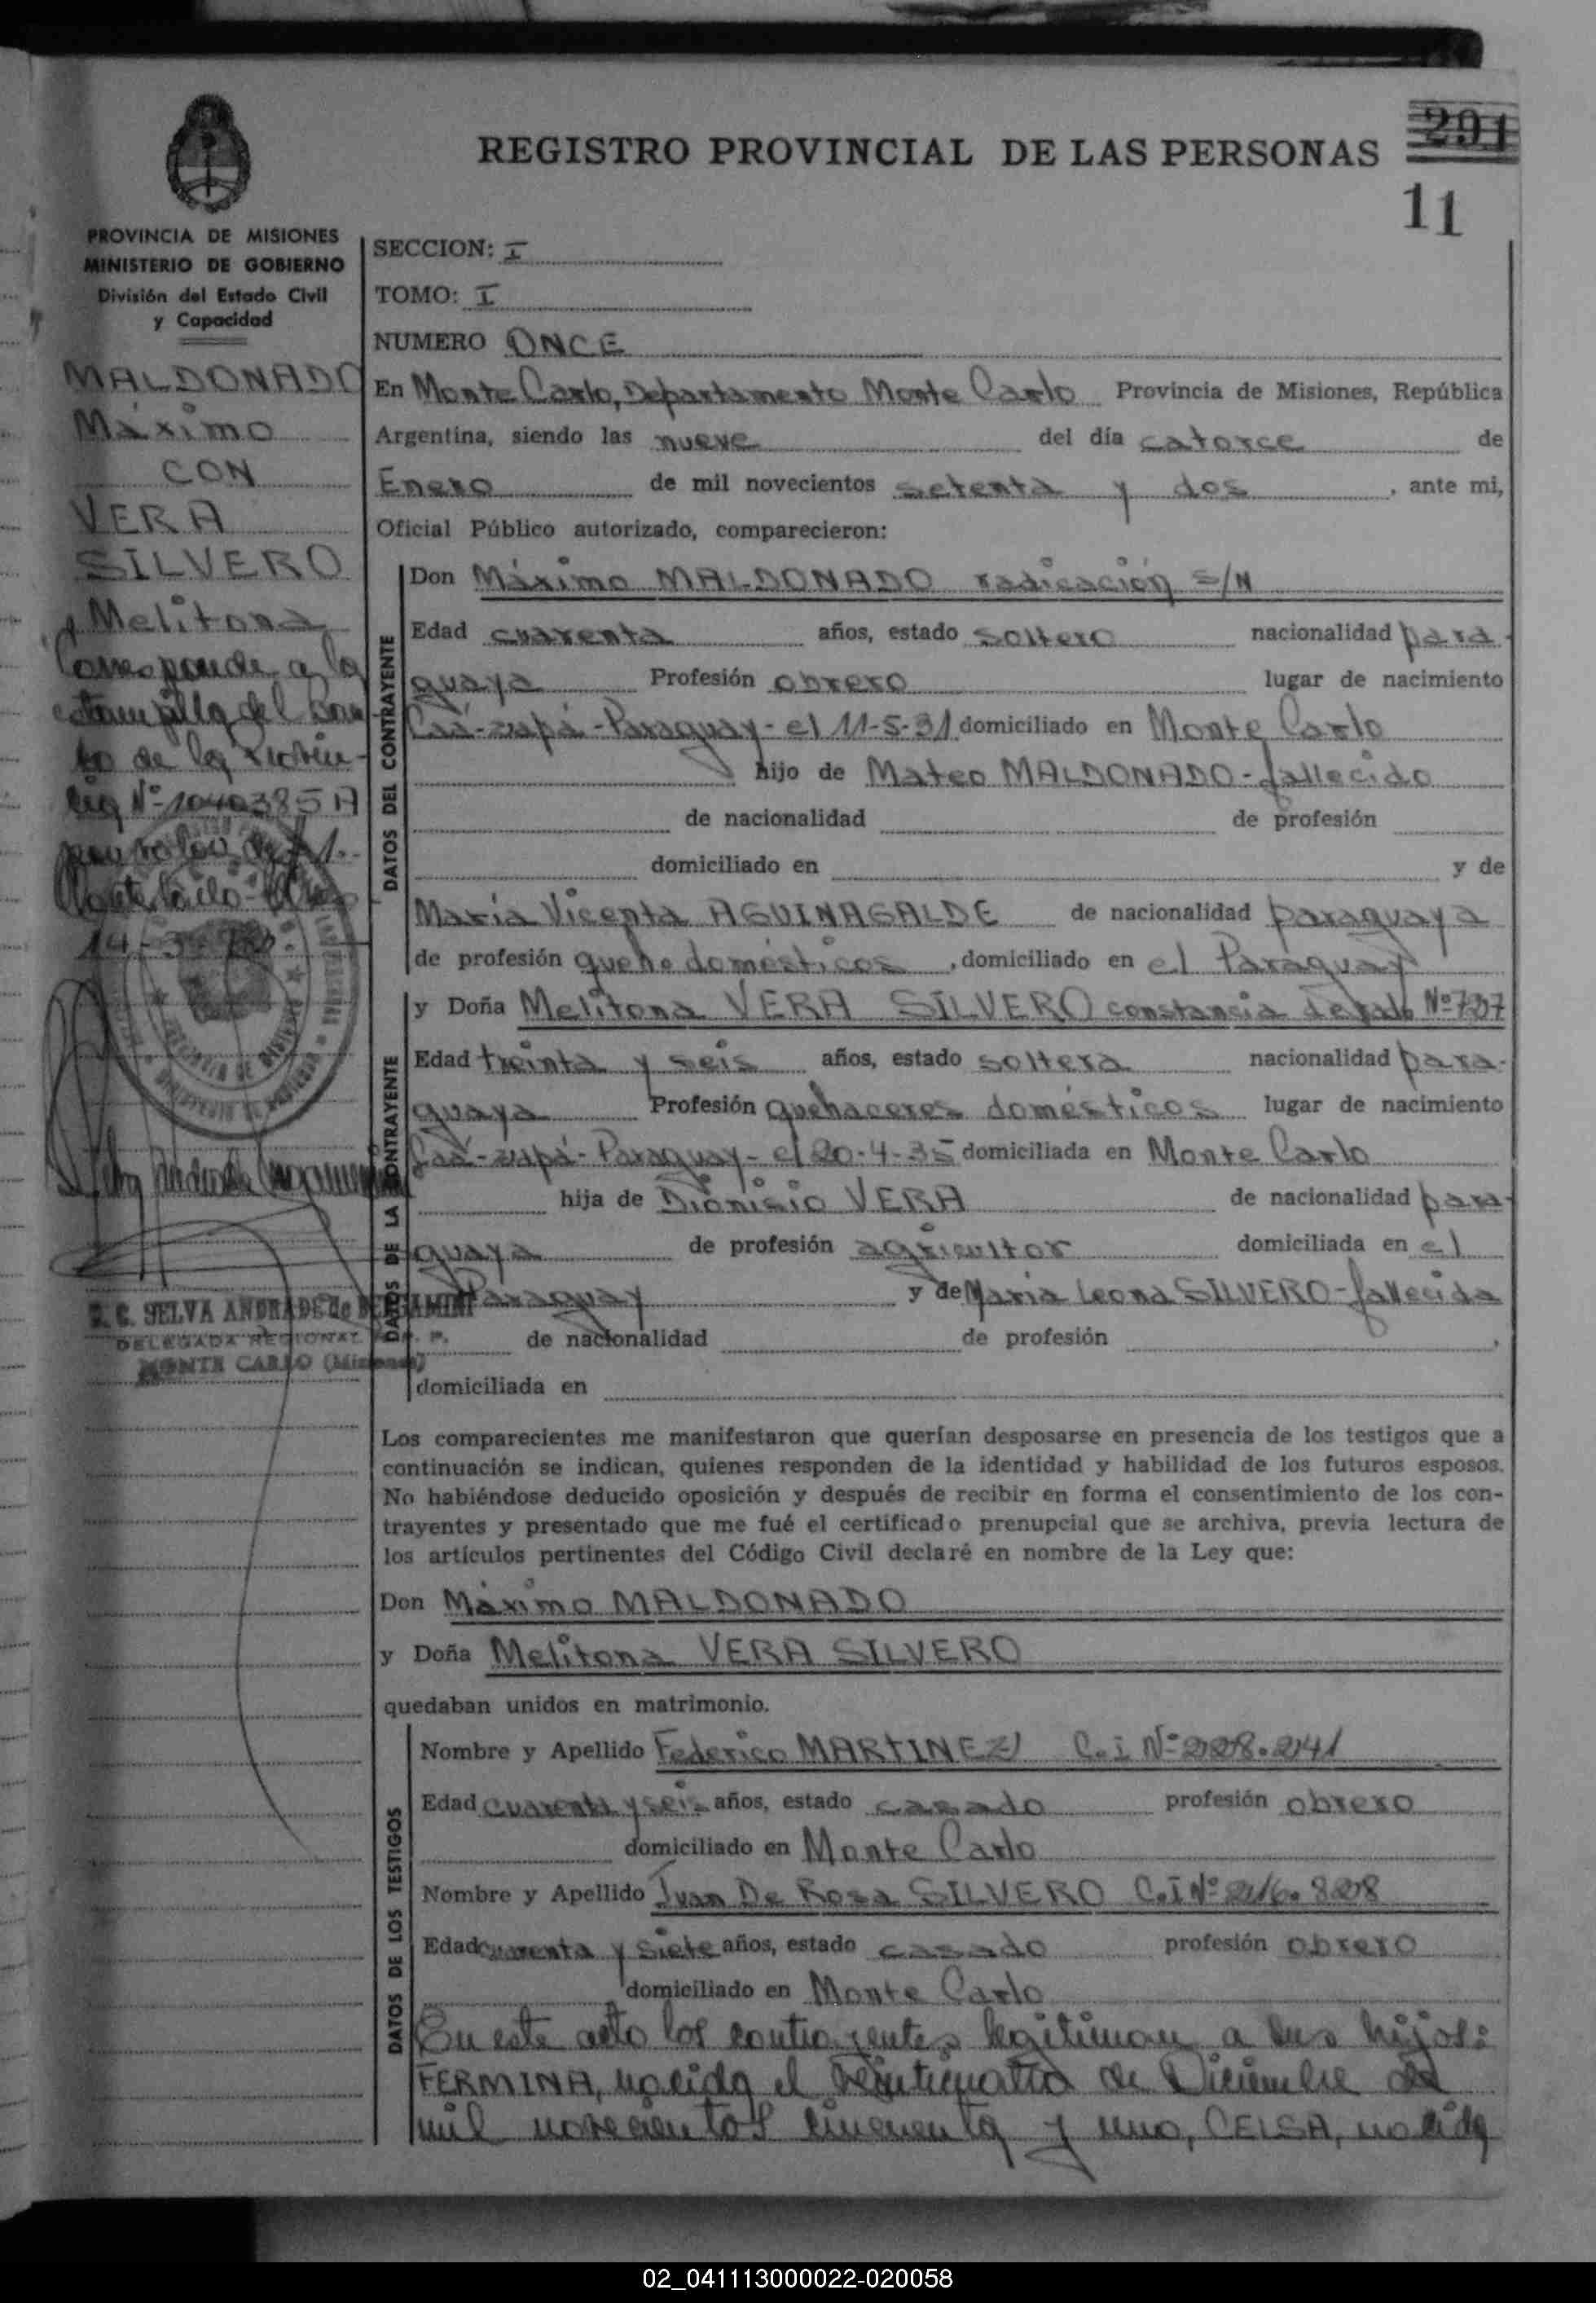 291
REGISTRO PROVINCIAL DE LAS PERSONAS
11
PROVINCIA DE MISIONES
MINISTERIO DE GOBIERNO
División del Estado Civil
y Capacidad
MALDONADO
Máximo
CON
VERA
SILVERO
Melitona
Corresponde a la
estampilla del
de la
Nº 10403855 A
por valor de
14-3-
S. C. SELVA ANDRADE de BERGAMINI
DELEGADA REGIONAL R. P. P.
MONTE CARLO (Misiones)
SECCION: I
TOMO: I
NUMERO ONCE
En Monte Carlo, Departamento Monte Carlo Provincia de Misiones, República
Argentina, siendo las nueve del día catorce de
Enero de mil novecientos setenta y dos, ante mi,
Oficial Público autorizado, comparecieron:
DATOS DEL CONTRAYENTE
Don Máximo MALDONADO radicación S/N
Edad cuarenta años, estado soltero nacionalidad para-
guaya Profesión obrero lugar de nacimiento
Caá-zupá-Paraguay-el 11-5-31 domiciliado en Monte Carlo
hijo de Mateo MALDONADO-fallecido
de nacionalidad de profesión
domiciliado en y de
María Vicenta AGUINAGALDE de nacionalidad paraguaya
de profesión quehe domésticos, domiciliado en el Paraguay
DATOS DE LA CONTRAYENTE
y Doña Melitona VERA SILVERO constancia de Nº 737
Edad treinta y seis años, estado soltera nacionalidad para-
guaya Profesión quehaceres domésticos lugar de nacimiento
Caá-zupá-Paraguay-el 20-4-35 domiciliada en Monte Carlo
hija de Dionisio VERA de nacionalidad para-
guaya de profesión agricultor domiciliada en el
Paraguay y de María Leona SILVERO-fallecida
de nacionalidad de profesión ,
domiciliada en
Los comparecientes me manifestaron que querían desposarse en presencia de los testigos que a
continuación se indican, quienes responden de la identidad y habilidad de los futuros esposos.
No habiéndose deducido oposición y después de recibir en forma el consentimiento de los con-
trayentes y presentado que me fué el certificado prenupcial que se archiva, previa lectura de
los artículos pertinentes del Código Civil declaré en nombre de la Ley que:
Don Máximo MALDONADO
y Doña Melitona VERA SILVERO
quedaban unidos en matrimonio.
DATOS DE LOS TESTIGOS
Nombre y Apellido Federico MARTINEZ C.I Nº 228.241
Edad cuarenta y seis años, estado casado profesión obrero
domiciliado en Monte Carlo
Nombre y Apellido Juan De Rosa SILVERO C.I Nº 216.828
Edad cuarenta y siete años, estado casado profesión obrero
domiciliado en Monte Carlo
En este acto los contrayentes legitiman a sus hijos:
FERMINA, nacida el veinticuatro de Diciembre de
mil novecientos cincuenta y uno, CELSA, nacida
02_041113000022-020058